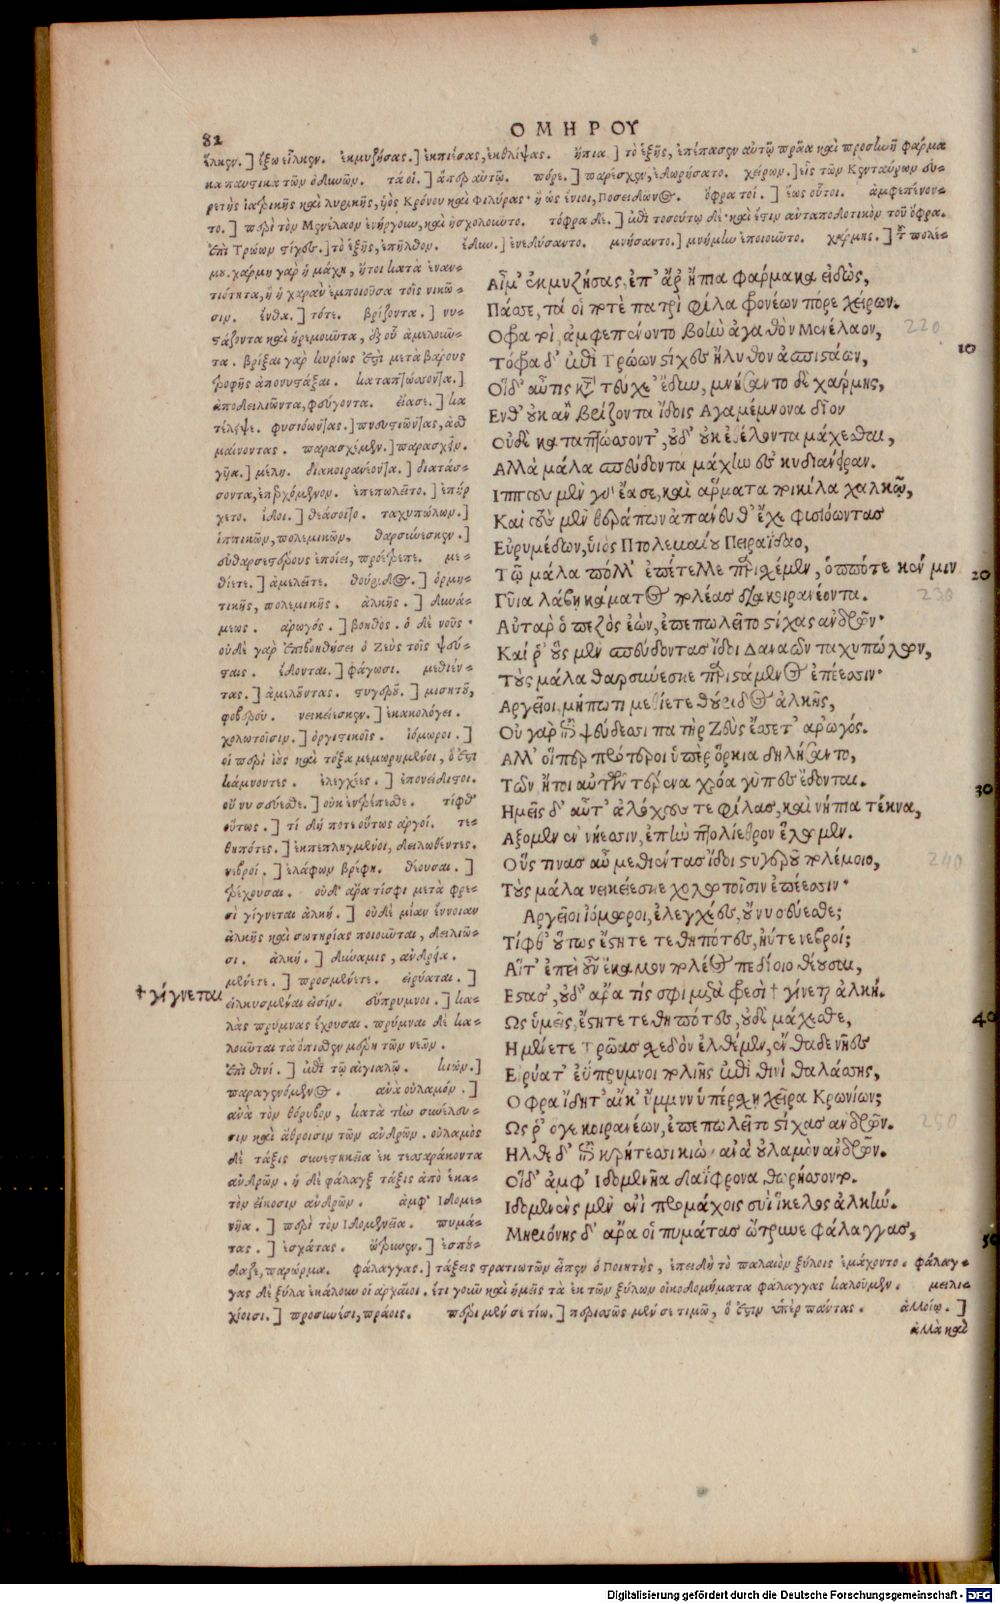 82
ΟΜΗΡΟΥ
ἕλκεν.] ἔξω εἷλκεν. ἐκμυζήσας.] ἐκπιέσας, ἐκθλίψας. ἤπια.] τὸ ἑξῆς, ἐπέπασεν αὐτῷ πρᾶα καὶ προσηνῆ φάρμα
κα παυστικὰ τῶν ὀδυνῶν. τά οἱ.] ἅπερ αὐτῷ. πόρε.] παρέσχεν, ἐδωρήσατο. χείρων.] εἷς τῶν Κενταύρων εὑ-
ρετὴς ἰατρικῆς καὶ λυρικῆς, υἱὸς Κρόνου καὶ Φιλύρας· ἢ ὡς ἔνιοι, Ποσειδῶνος. ὄφρα τοί.] ἕως οὗτοι. ἀμφεπένον-
το.] περὶ τὸν Μενέλαον ἐνήργουν, καὶ ἠσχολοῦντο. τόφρα δέ.] ἐπὶ τοσούτῳ δέ· καὶ ἔστιν ἀνταποδοτικὸν τοῦ ὄφρα.
ἐπὶ Τρώων στίχες.] τὸ ἑξῆς, ἐπῆλθον. ἔδυν.] ἐνεδύσαντο. μνήσαντο.] μνήμην ἐποιοῦντο. χάρμης.] τ πολέ-
μου. χάρμη γὰρ ἡ μάχη, ἤτοι κατὰ ἐναν-
τιότητα, ἢ ἡ χαρὰν ἐμποιοῦσα τοῖς νικῶ-
σιν. ἔνθα.] τότε. βρίζοντα.] νυ-
στάζοντα καὶ ἠρεμοῦντα, ἐξ οὗ ἀμελοῦν-
τα. βρίξαι γὰρ κυρίως ἐπὶ μετὰ βάρους
τροφῆς ἀπονυστάξαι. καταπτώσσοντα.]
ἀποδειλιῶντα, φεύγοντα. εἴασε.] κα
τέλειψε. φυσιόωντας.] πνευστιῶντας, ἀσθ
μαίνοντας. παρασχέμεν.] παρασχεῖν.
γυῖα.] μέλη. διακοιρανέοντα.] διατάσ-
σοντα, ἐπερχόμενον. ἐπεπωλεῖτο.] ἐπήρ
χετο. ἴδοι.] θεάσοιτο. ταχυπώλων.]
ἱππικῶν, πολεμικῶν. θαρσύνεσκεν.]
εὐθαρσεστέρους ἐποίει, προέτρεπε. με-
θίετε.] ἀμελεῖτε. θούριδος.] ὁρμη-
τικῆς, πολεμικῆς. ἀλκῆς.] δυνά-
μεως. ἀρωγός.] βοηθός. ὁ δὲ νοῦς·
οὐδὲ γὰρ ἐπιβοηθήσει ὁ Ζεὺς τοῖς ψεύ-
σταις. ἔδονται.] φάγωσι. μεθιέν-
τας.] ἀμελοῦντας. στυγεροῦ.] μισητοῦ,
φοβεροῦ. νεικείεσκεν.] ἐκακολόγει.
χολωτοῖσιν.] ὀργιστικοῖς. ἰόμωροι.]
οἱ περὶ ἰοὺς καὶ τόξα μεμωρημένοι, ὅ ἐστι
κάμνοντες. ἐλεγχέες.] ἐπονείδιστοι.
οὔ νυ σέβεσθε.] οὐκ ἐντρέπεσθε. τίφθ'
οὕτως.] τί δή ποτε οὕτως ἀργοί. τε-
θηπότες.] ἐκπεπληγμένοι, δειλωθέντες.
νεβροί.] ἐλάφων βρέφη. θέουσαι.]
τρέχουσαι. οὐδ' ἄρα τίς σφι μετὰ φρε-
σὶ γίγνεται ἀλκή.] οὐδὲ μίαν ἔννοιαν
ἀλκῆς καὶ σωτηρίας ποιοῦνται, δειλιῶ-
σι. ἀλκή.] δύναμις, ἀνδρία.
μένετε.] προσμένετε. εἰρύαται.]
† γίγνεται
εἱλκυσμέναι εἰσίν. εὔπρυμνοι.] κα-
λὰς πρύμνας ἔχουσαι. πρύμναι δὲ κα-
λοῦνται τὰ ὄπισθεν μέρη τῶν νεῶν.
ἐπὶ θινί.] ἐπὶ τῷ αἰγιαλῷ. κιών.]
παραγενόμενος. ἀνὰ οὐλαμόν.]
ἀνὰ τὸν θόρυβον, κατὰ τὴν συνέλευ-
σιν καὶ ἄθροισιν τῶν ἀνδρῶν. οὐλαμὸς
δὲ τάξις συνεστηκυῖα ἐκ τεσσαράκοντα
ἀνδρῶν. ἡ δὲ φάλαγξ τάξις ἀπὸ ἑκα-
τὸν εἴκοσιν ἀνδρῶν. ἀμφ' Ἰδομε-
νῆα.] περὶ τὸν Ἰδομενέα. πυμά-
τας.] ἐσχάτας. ὤτρυνεν.] ἐσπού-
δαζε, παρώρμα. φάλαγγας.] τάξεις στρατιωτῶν εἶπεν ὁ Ποιητής, ἐπειδὴ τὸ παλαιὸν ξύλοις ἐμάχοντο· φάλαγ-
γας δὲ ξύλα ἐκάλουν οἱ ἀρχαῖοι. ἔτι γοῦν καὶ ἡμεῖς τὰ ἐκ τῶν ξύλων οἰκοδομήματα φάλαγγας καλοῦμεν. μειλι-
χίοισι.] προσηνέσι, πράοις. περὶ μέν σε τίω.] περισσῶς μέν σε τιμῶ, ὅ ἐστιν ὑπὲρ πάντας. ἀλλοίῳ.]
ἀλλὰ καὶ
Αἷμ' ἐκμυζήσας, ἐπ' ἄρ' ἤπια φάρμακα εἰδὼς,
Πάσσε, τά οἱ ποτὲ πατρὶ φίλα φρονέων πόρε χείρων.
Οφρα τοὶ ἀμφεπένοντο βοὴν ἀγαθὸν Μενέλαον, 220
Τόφρα δ' ἐπὶ Τρώων στίχες ἤλυθον ἀσπιστάων, 10
Οἵδ' αὖτις κτ τεύχε' ἔδυν, μνήσαντο δὲ χάρμης,
Ενθ' οὐκ ἂν βρίζοντα ἴδοις Αγαμέμνονα δῖον
Οὐδὲ καταπτώσσοντ', οὐδ' οὐκ ἐθέλοντα μάχεσθαι,
Αλλὰ μάλα σπεύδοντα μάχην ἐς κυδιάνειραν.
Ιππους μὲν γὰρ ἔασε, καὶ ἅρματα ποικίλα χαλκῷ,
Καὶ τοὺς μὲν θεράπων ἀπάνευθ' ἔχε φυσιόωντας
Εὐρυμέδων, υἱὸς Πτολεμαίου Πειραΐδαο,
Τῷ μάλα πόλλ' ἐπέτελλε παρισχέμεν, ὁππότε κέν μιν 20
Γυῖα λάβῃ κάματος πολέας διακοιρανέοντα. 230
Αὐτὰρ ὁ πεζὸς ἐὼν, ἐπεπωλεῖτο στίχας ἀνδρῶν·
Καί ῥ' οὓς μὲν σπεύδοντας ἴδοι Δαναῶν ταχυπώλων,
Τοὺς μάλα θαρσύνεσκε παριστάμενος ἐπέεσσιν·
Αργεῖοι, μήπω τι μεθίετε θούριδος ἀλκῆς,
Οὐ γὰρ ἐπὶ ψεύδεσσι πατὴρ Ζεὺς ἔσσετ' ἀρωγός.
Αλλ' οἵπερ πρότεροι ὑπὲρ ὅρκια δηλήσαντο,
Τῶν ἤτοι αὐτῶν τέρενα χρόα γῦπες ἔδονται. 30
Ημεῖς δ' αὖτ' ἀλόχους τε φίλας, καὶ νήπια τέκνα,
Αξομεν ἐν νήεσσιν, ἐπὴν πτολίεθρον ἕλωμεν.
Οὕς τινας αὖ μεθιέντας ἴδοι στυγεροῦ πολέμοιο, 240
Τοὺς μάλα νεικείεσκε χολωτοῖσιν ἐπέεσσιν·
Αργεῖοι ἰόμωροι, ἐλεγχέες, οὔ νυ σέβεσθε;
Τίφθ' οὕτως ἔστητε τεθηπότες, ἠύτε νεβροί;
Αἵτ' ἐπεὶ οὖν ἔκαμον πολέος πεδίοιο θέουσαι,
Εστᾶσ', οὐδ' ἄρα τίς σφι μετὰ φρεσὶ † γίνεται ἀλκή.
Ως ὑμεῖς, ἔστητε τεθηπότες, οὐδὲ μάχεσθε, 40
Η μένετε Τρῶας σχεδὸν ἐλθέμεν, ἔνθα δε νῆες
Εἰρύατ' εὔπρυμνοι πολιῆς ἐπὶ θινὶ θαλάσσης,
Οφρα ἴδητ' αἴκ' ὔμμιν ὑπέρσχῃ χεῖρα Κρονίων;
Ως ῥ' ὅγε κοιρανέων, ἐπεπωλεῖτο στίχας ἀνδρῶν. 250
Ηλθε δ' ἐπὶ κρήτεσσι κιὼν ἀνὰ οὐλαμὸν ἀνδρῶν.
Οἵδ' ἀμφ' Ιδομενῆα δαΐφρονα θωρήσσοντο.
Ιδομενεὺς μὲν ἐνὶ προμάχοις συῒ εἴκελος ἀλκήν.
Μηριόνης δ' ἄρα οἱ πυμάτας ὤτρυνε φάλαγγας, 50
Digitalisierung gefördert durch die Deutsche Forschungsgemeinschaft - DFG